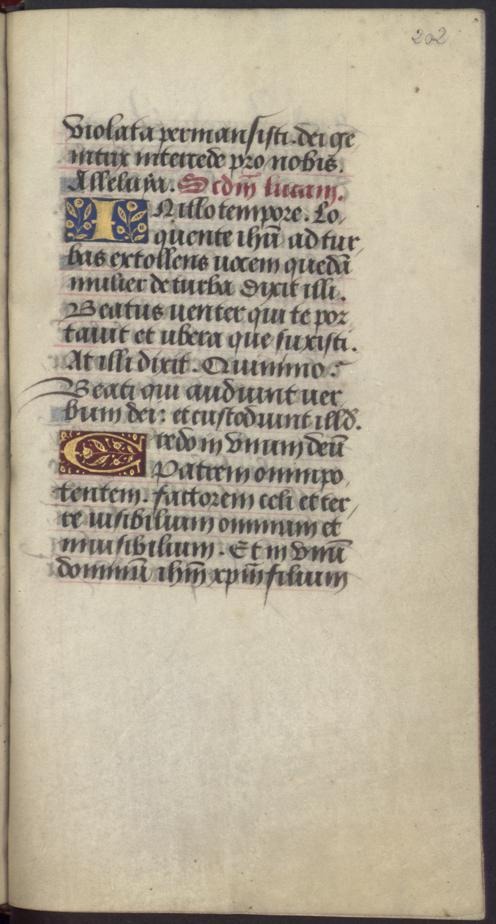 202
violata permansisti. dei ge
nitrix intercede pro nobis.
Alleluya. Scdm lucam.
IN illo tempore. Lo,
quente ihu ad tur,
bas extollens uocem queda
mulier de turba dixit illi.
Beatus uenter qui te por
tauit et ubera que suxisti.
At ille dixit. Quinimo:
Beati qui audiunt uer
bum dei: et custodiunt illd.
Credo in vnum deu
Patrem omnipo
tentem. factorem celi et ter,
re uisibilium omnium et
inuisibilium. Et in vnu
dominu ihm xpm filium